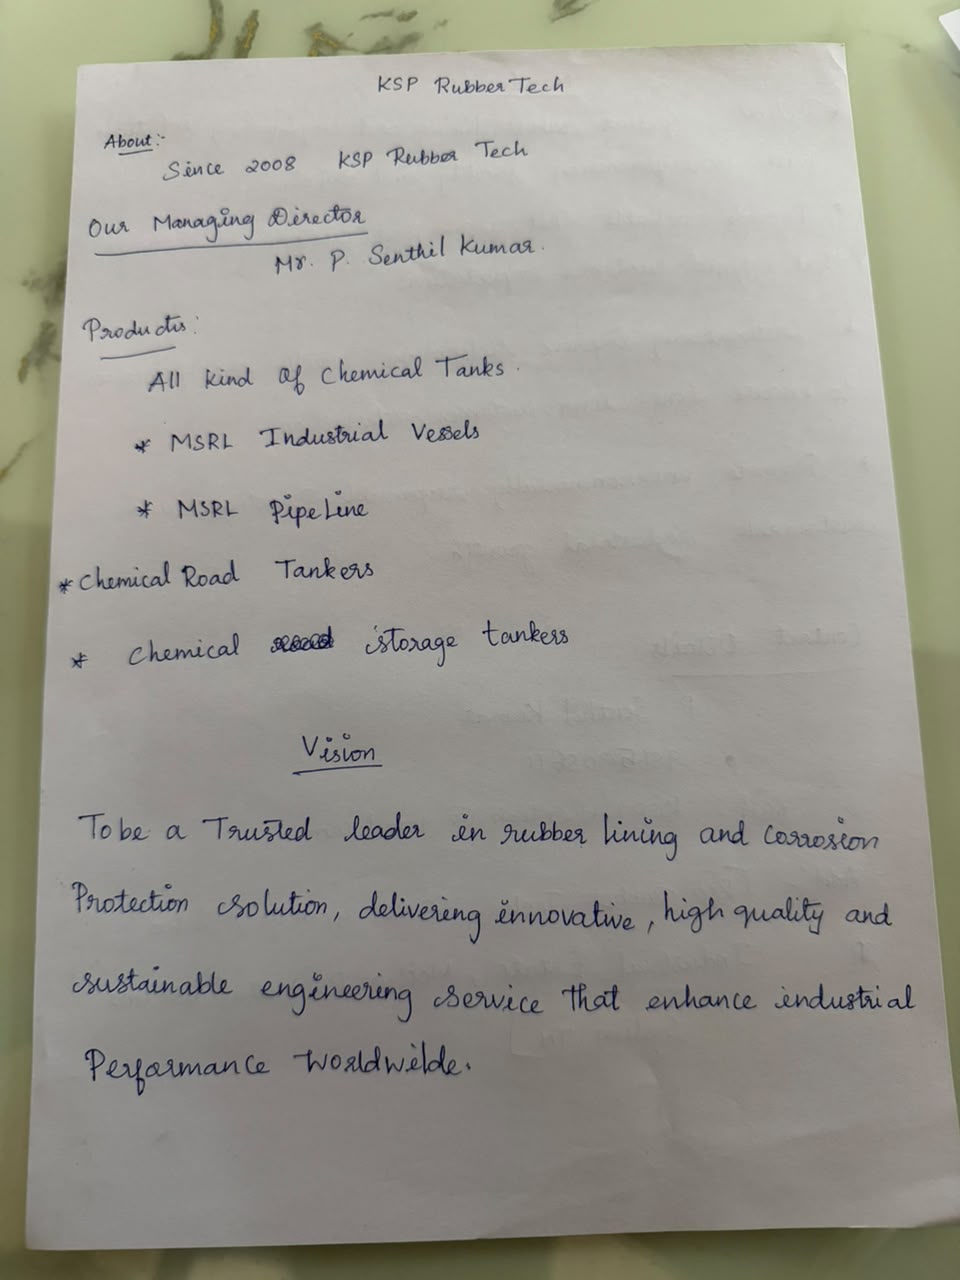 KSP Rubber Tech
About:-
Since 2008 KSP Rubber Tech
Our Managing Director
Mr. P. Senthil Kumar.
Products:
All kind of Chemical Tanks.
* MSRL Industrial Vessels
* MSRL PipeLine
* Chemical Road Tankers
* Chemical storage tankers
Vision
To be a Trusted leader in rubber lining and corrosion
Protection solution, delivering innovative, high quality and
sustainable engineering service that enhance industrial
Performance worldwilde.